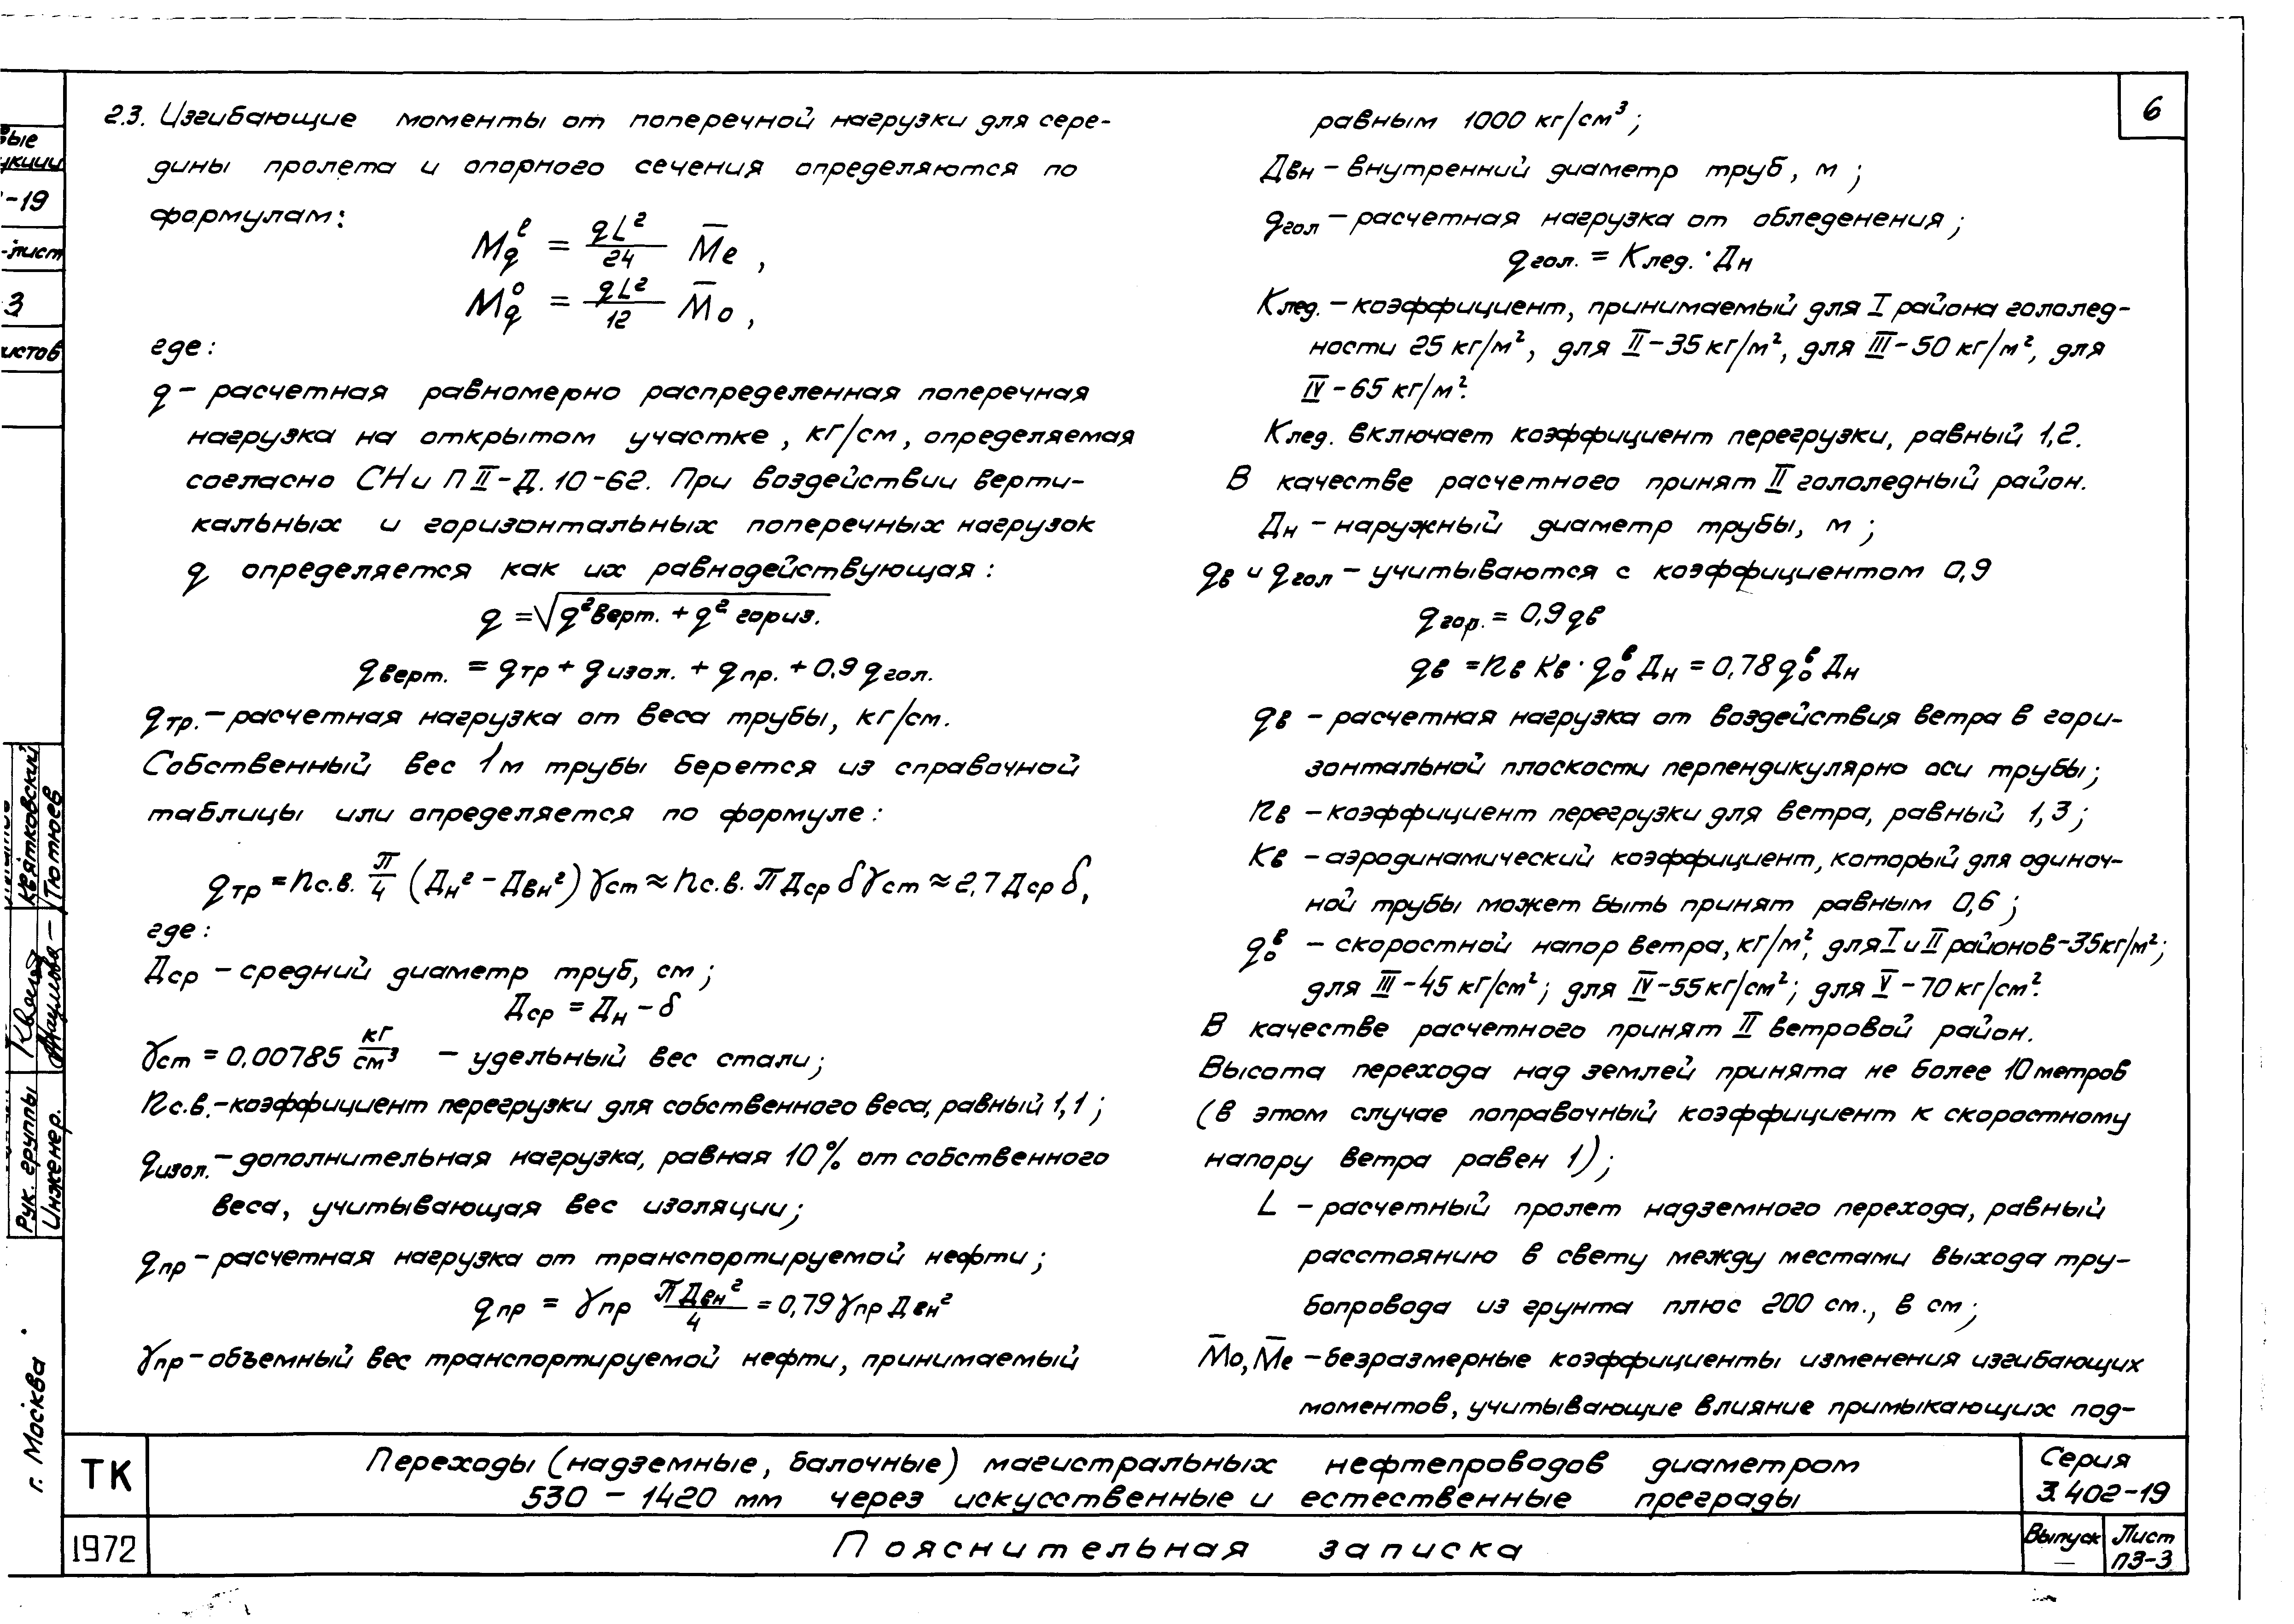 6
2.3. Изгибающие моменты от поперечной нагрузки для сере-
дины пролета и опорного сечения определяются по
формулам:
M_q^ℓ = qL²/24 M̄ℓ,
M_q^o = qL²/12 M̄о,
где:
q – расчетная равномерно распределенная поперечная
нагрузка на открытом участке, кг/см, определяемая
согласно СНиП II-Д.10-62. При воздействии верти-
кальных и горизонтальных поперечных нагрузок
q определяется как их равнодействующая:
q = √(q² верт. + q² гориз.)
q верт. = q тр + q изол. + q пр. + 0,9 q гол.
q тр. – расчетная нагрузка от веса трубы, кг/см.
Собственный вес 1 м трубы берется из справочной
таблицы или определяется по формуле:
q тр = n с.в. π/4 (Дн² – Двн²) γст ≈ n с.в. π Дср δ γст ≈ 2,7 Дср δ,
где:
Дср – средний диаметр труб, см;
Дср = Дн – δ
γст = 0,00785 кг/см³ – удельный вес стали;
n с.в. – коэффициент перегрузки для собственного веса, равный 1,1;
q изол. – дополнительная нагрузка, равная 10% от собственного
веса, учитывающая вес изоляции;
q пр – расчетная нагрузка от транспортируемой нефти;
q пр = γпр πДвн²/4 = 0,79 γпр Двн²
γпр – объемный вес транспортируемой нефти, принимаемый
равным 1000 кг/см³;
Двн – внутренний диаметр труб, м;
q гол – расчетная нагрузка от обледенения;
q гол. = К лед. · Дн
К лед. – коэффициент, принимаемый для I района гололед-
ности 25 кг/м², для II – 35 кг/м², для III – 50 кг/м², для
IV – 65 кг/м².
К лед. включает коэффициент перегрузки, равный 1,2.
В качестве расчетного принят II гололедный район.
Дн – наружный диаметр трубы, м;
qв и q гол – учитываются с коэффициентом 0,9
q гор. = 0,9 qв
qв = nв Kв · q₀ᵛ Дн = 0,78 q₀ᵛ Дн
qв – расчетная нагрузка от воздействия ветра в гори-
зонтальной плоскости перпендикулярно оси трубы;
nв – коэффициент перегрузки для ветра, равный 1,3;
Кв – аэродинамический коэффициент, который для одиноч-
ной трубы может быть принят равным 0,6;
q₀ᵛ – скоростной напор ветра, кг/м², для I и II районов – 35 кг/м²;
для III – 45 кг/см²; для IV – 55 кг/см²; для V – 70 кг/см².
В качестве расчетного принят II ветровой район.
Высота перехода над землей принята не более 10 метров
(в этом случае поправочный коэффициент к скоростному
напору ветра равен 1);
L – расчетный пролет надземного перехода, равный
расстоянию в свету между местами выхода тру-
бопровода из грунта плюс 200 см., в см;
M̄о, M̄ℓ – безразмерные коэффициенты изменения изгибающих
моментов, учитывающие влияние примыкающих под-
ТК
Переходы (надземные, балочные) магистральных нефтепроводов диаметром
530 – 1420 мм через искусственные и естественные преграды
Серия
3.402-19
1972
Пояснительная записка
Выпуск
—
Лист
ПЗ-3
-19
-лист
3
Квятковский
Тютюев
Рук. группы
Инженер.
г. Москва